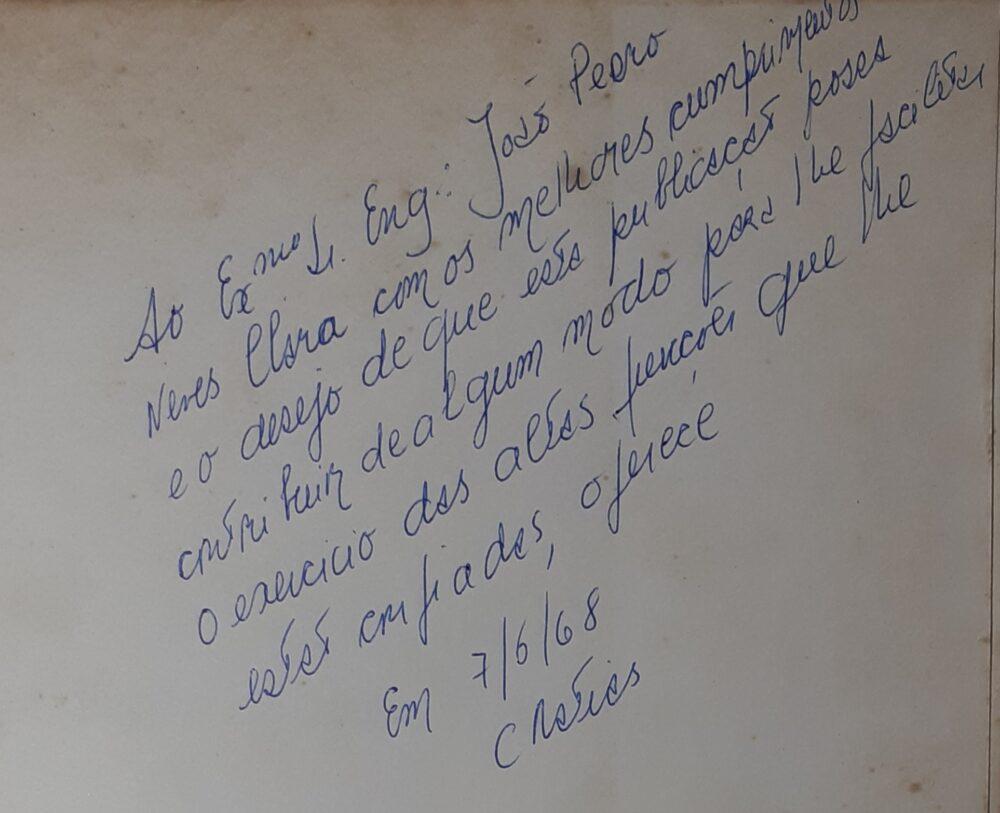 Ao Exmo Sr. Eng.: João Pedro
Neves Clara com os melhores cumprimentos
e o desejo de que esta publicação possa
contribuir de algum modo para lhe facilitar
o exercicio das altas funções que lhe
estão confiadas, oferece
Em 7/6/68